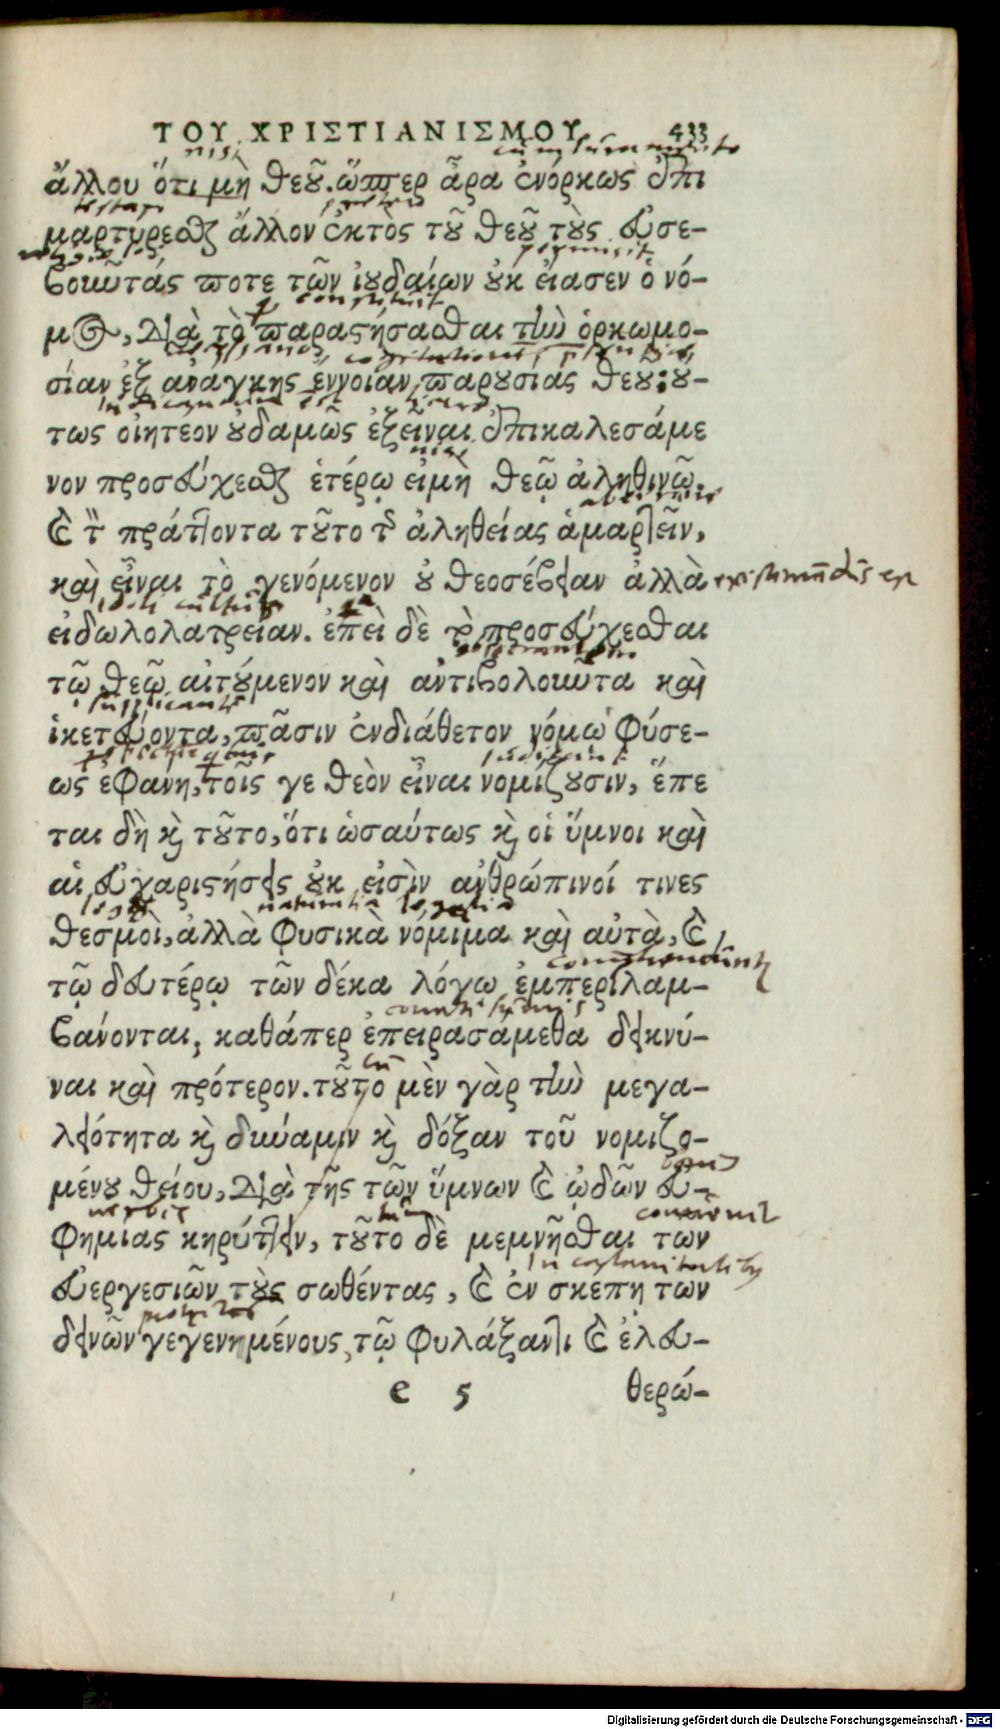 ΤΟΥ ΧΡΙΣΤΙΑΝΙΣΜΟΥ 433
nisi
ἄλλου ὅτι μὴ θεοῦ. ὥσπερ ἆρα ἐνόρκως ἐπι
testari praeter
μαρτύρεσθαι ἄλλον ἐκτὸς τοῦ θεοῦ τοὺς εὐσε-
permisit
βοιωῦτάς ποτε τῶν ἰουδαίων οὐκ εἰασεν ὁ νό-
constituit
μος, διὰ τὸ παραστήσασθαι τὴν ὁρκωμο-
cogitationem
σίαν ἐξ ἀνάγκης ἔννοιαν παρουσίας θεοῦ: οὕ-
τως οἰητεον οὐδαμῶς ἐξεῖναι ἐπικαλεσάμε
nisi
νον προσεύχεσθαι ἑτέρῳ εἰμὴ θεῷ ἀληθινῷ.
καὶ τὸν πράττοντα τοῦτο τῆς ἀληθείας ἁμαρτεῖν,
καὶ εἶναι τὸ γενόμενον οὐ θεοσέβειαν ἀλλὰ
idoli cultum
εἰδωλολατρείαν. ἐπεὶ δὲ τὸ προσεύχεσθαι
obsecrantem
τῷ θεῷ αἰτούμενον καὶ ἀντιβολοιωῦτα καὶ
supplicante
ἱκετεύοντα, πᾶσιν ἐνδιάθετον νόμῳ φύσε-
ως εφανη, τοῖς γε θεὸν εἶναι νομίζουσιν, ἕπε
ται δὴ καὶ τοῦτο, ὅτι ὡσαύτως καὶ οἱ ὕμνοι καὶ
αἱ εὐχαριστήσεις οὐκ εἰσὶν ἀνθρώπινοί τινες
naturalia legalia
θεσμοὶ, ἀλλὰ φυσικὰ νόμιμα καὶ αὐτὰ, καὶ
τῷ δευτέρῳ τῶν δέκα λόγῳ ἐμπεριλαμ-
conati sumus
βάνονται, καθάπερ ἐπειρασάμεθα δεικνύ-
ναι καὶ πρότερον. τοῦτο μὲν γὰρ τὴν μεγα-
λειότητα καὶ δύναμιν καὶ δόξαν τοῦ νομιζο-
μένου θείου, διὰ τῆς τῶν ὕμνων καὶ ᾠδῶν εὐ-
φημιας κηρύττειν, τοῦτο δὲ μεμνῆσθαι των
εὐεργεσιῶν τοὺς σωθέντας, καὶ ἐν σκέπη των
δεινῶν γεγενημένους, τῷ φυλάξαντι καὶ ἐλευ-
e 5 θερώ-
Digitalisierung gefördert durch die Deutsche Forschungsgemeinschaft - DFG